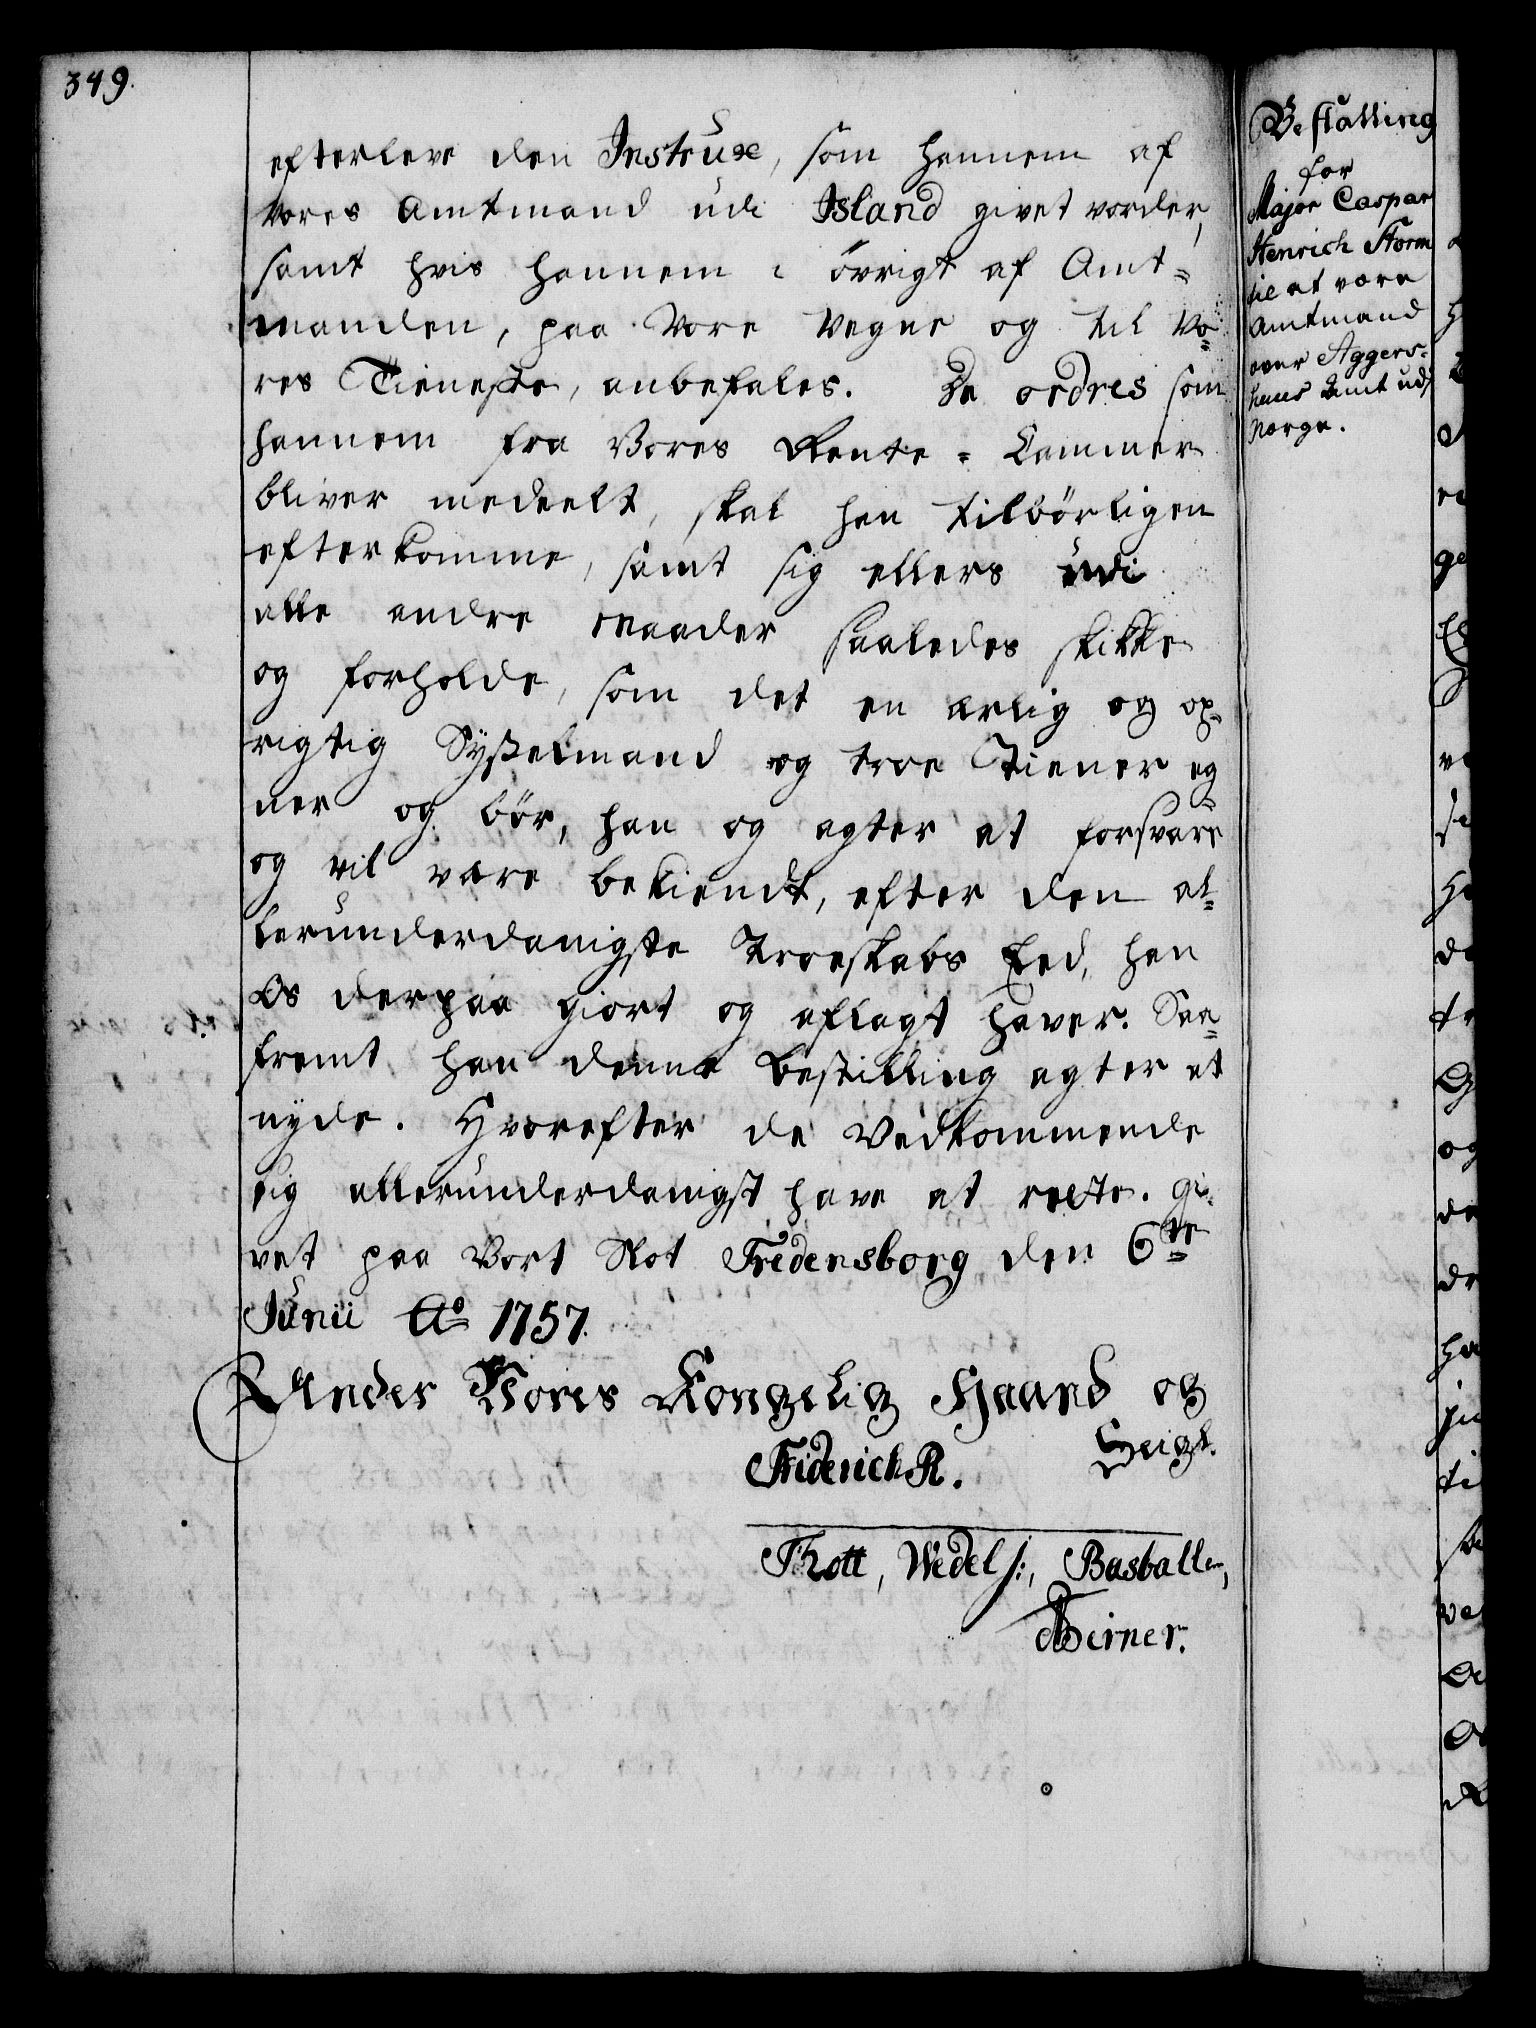 349.
efterleve den Instrux, som hannem af
Vores Amtmand udi Island givet vorder,
samt hvis hannem i övrigt af Amt=
manden, paa Vore Vegne og til Vo=
res Tieneste, anbefales. De ordres som
hannem fra Vores Rente=Cammer
bliver meedelt, skal han tilbörligen
efterkomme, samt sig ellers udi
alle andre Maader saaledes skikke
og forholde, som det en ærlig og op=
rigtig Sysselmand og troe Tiener eg
ner og bör, han og agter at forsvare
og vil være bekiendt, efter den al=
lerunderdanigste Troeskabs Eed, han
Os derpaa giort og aflagt haver. Saa=
fremt han denne Bestilling agter at
nyde. Hvorefter de Vedkommende
sig allerunderdanigst have at rette. Gi=
vet paa Vort Slot Fredensborg den 6te
Junii Ao 1757.
Under Vores Kongelig Haand og
Seigl.
Friderich R.
Thott, Wedel f:, Basballe,
Berner.
Bestalling
for
Major Caspar
Henrich Storm
til at være
Amtmand
over Aggers=
huus Amt udi
Norge.